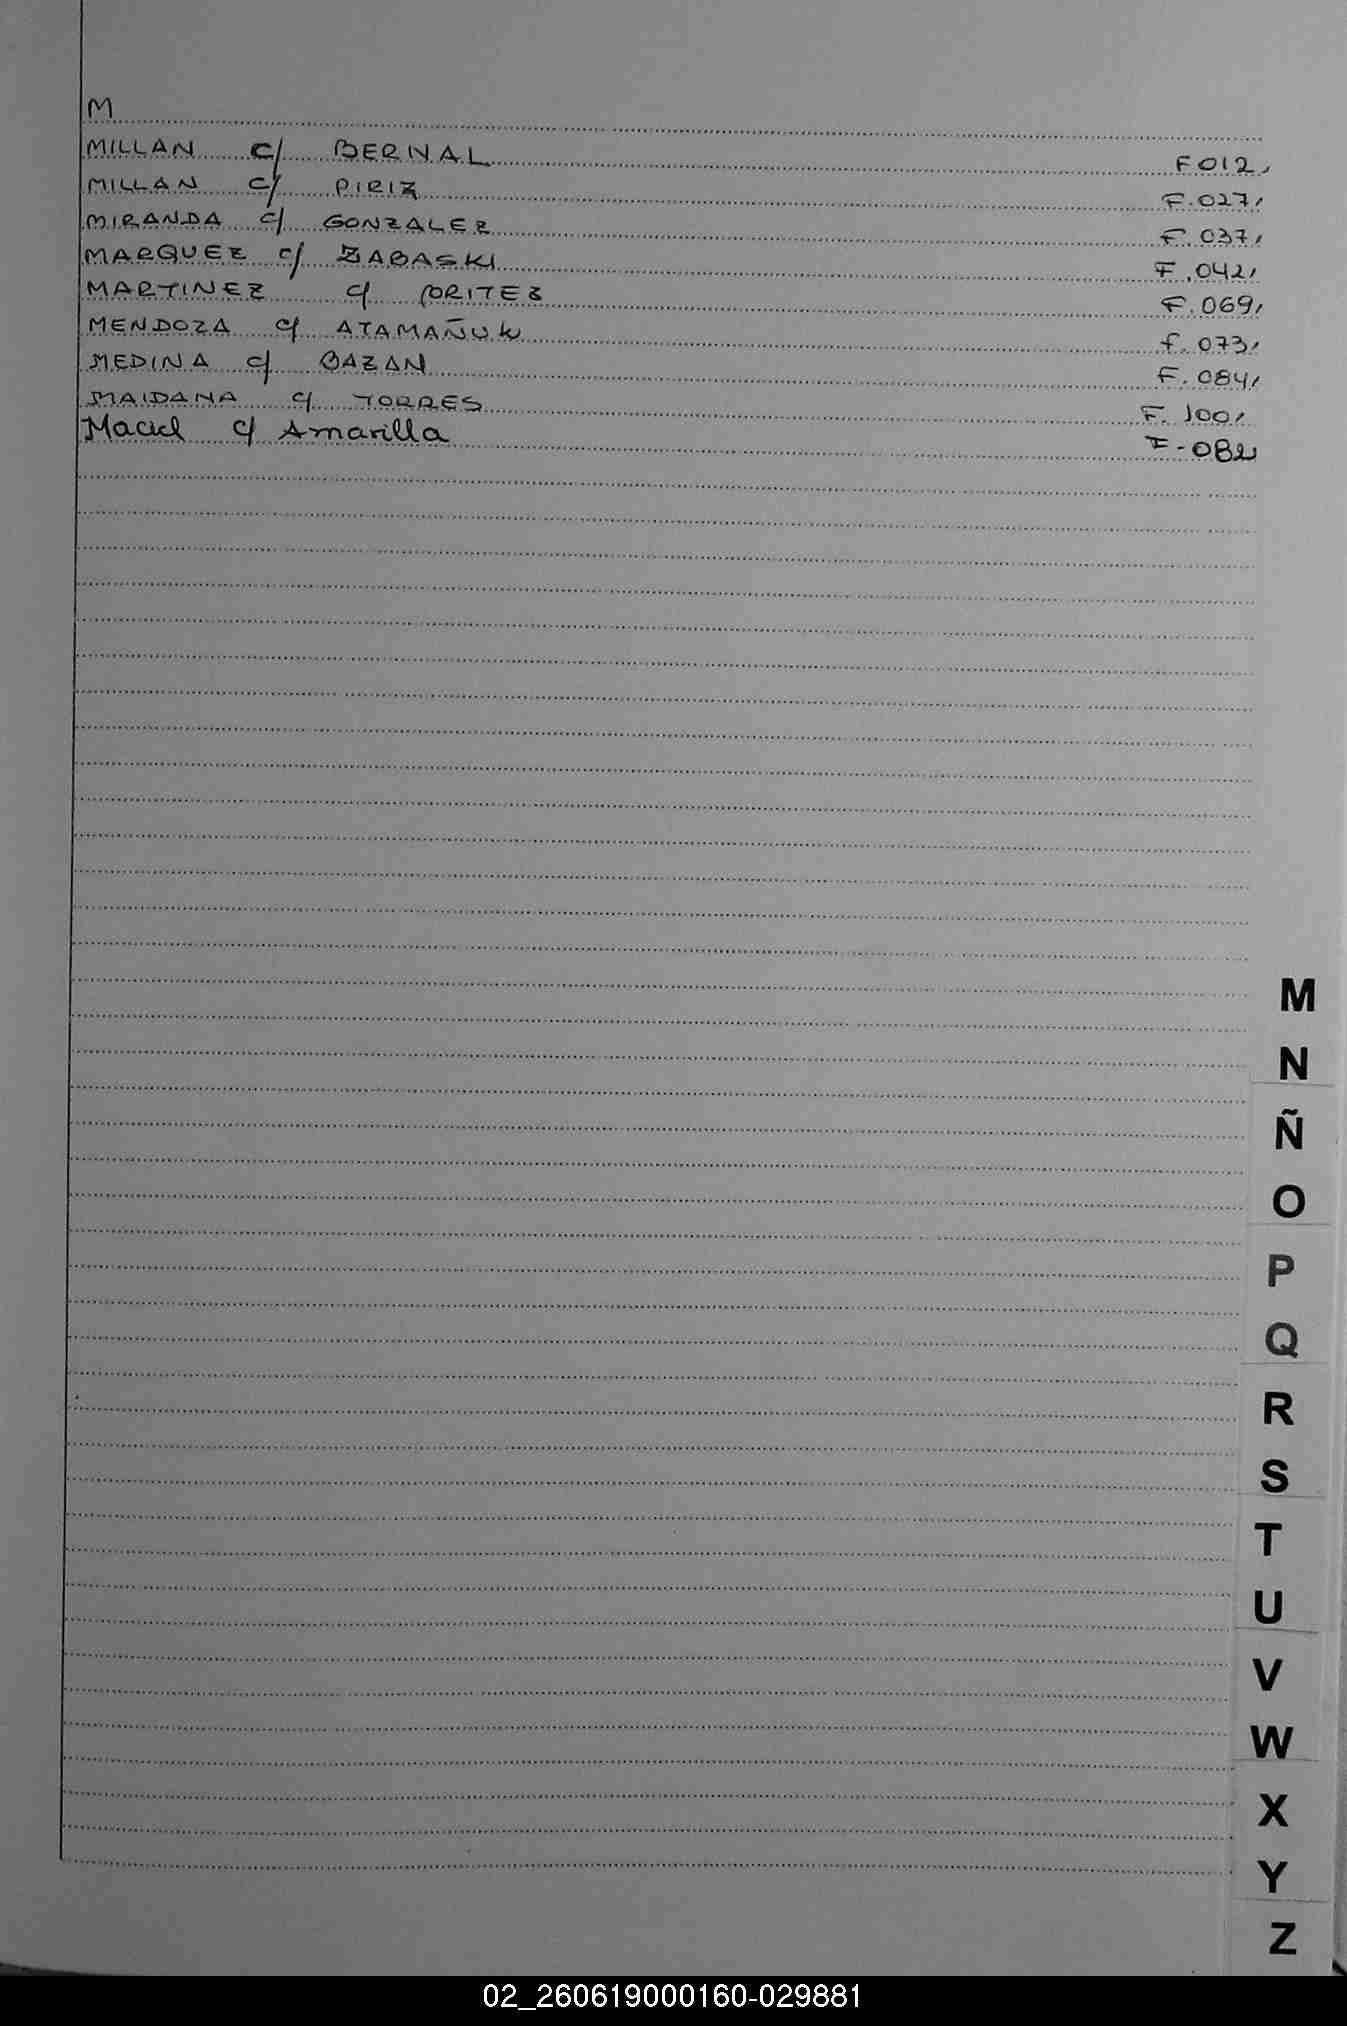 M
MILLAN c/ BERNAL F 012,
MILLAN c/ PIRIZ F. 027,
MIRANDA c/ GONZALEZ F. 037,
MARQUEZ c/ ZABASKI F. 042,
MARTINEZ c/ BRITEZ F. 069,
MENDOZA c/ ATAMAÑUK F. 073,
MEDINA c/ BAZAN F. 084,
MAIDANA c/ TORRES F. 100,
Maciel c/ Amarilla F-082
M
N
Ñ
O
P
Q
R
S
T
U
V
W
X
Y
Z
02_260619000160-029881